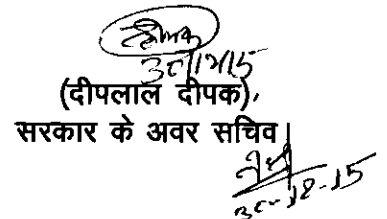 दीपक
(दीपलाल दीपक),
सरकार के अवर सचिव।
30-12-15